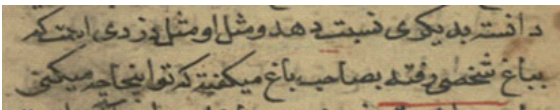 دانسته بدیگری نسبت دهد و مثل او مثل دزدی است که
بباغ شخصی رفته بصاحب باغ میگفته که تو اینجا چه میکنی